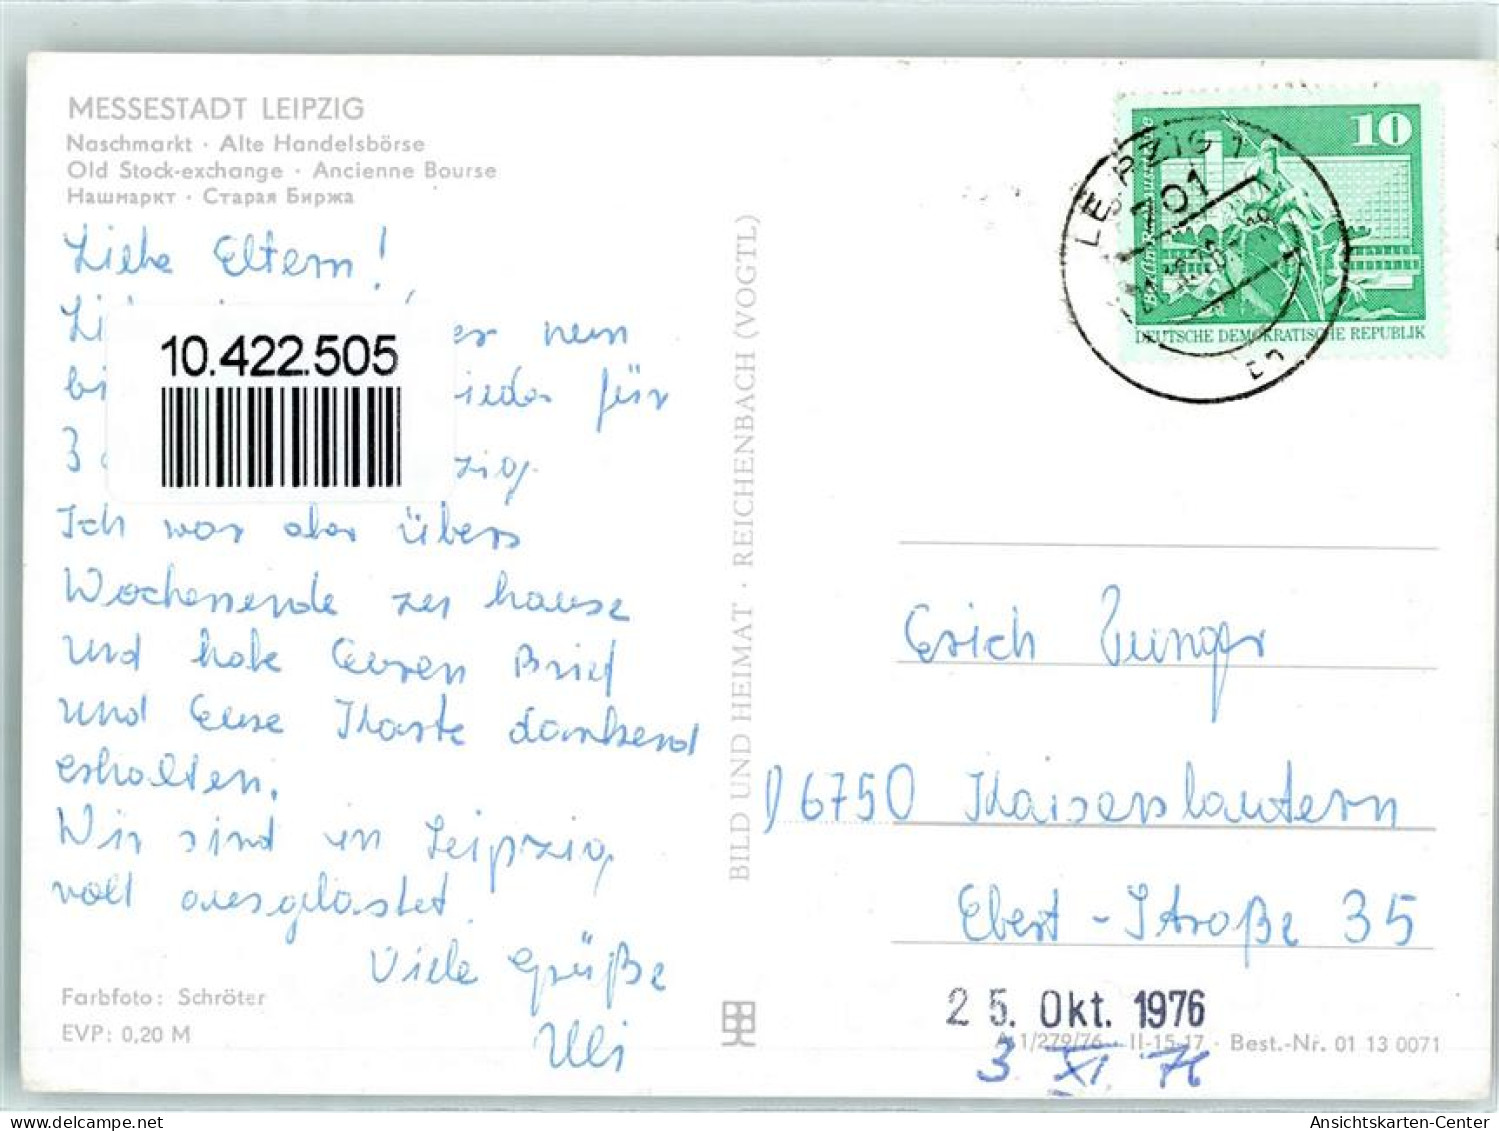 MESSESTADT LEIPZIG
Naschmarkt · Alte Handelsbörse
Old Stock-exchange · Ancienne Bourse
Нашмаркт · Старая Биржа
Liebe Eltern!
10.422.505
für
3
Ich war aber übers
Wochenende zu hause
und habe Euren Brief
und Eure Karte dankend
erhalten.
Wir sind in Leipzig
voll ausgelastet.
Viele Grüße
Uli
Farbfoto: Schröter
EVP: 0,20 M
BILD UND HEIMAT · REICHENBACH (VOGTL)
10
DEUTSCHE DEMOKRATISCHE REPUBLIK
LEIPZIG 1
701
Erich Junger
D 6750 Kaiserslautern
Ebert-Straße 35
25. Okt. 1976
A 1/279/76 · II-15-17 · Best.-Nr. 01 13 0071
3. XI. 76
Ansichtskarten-Center